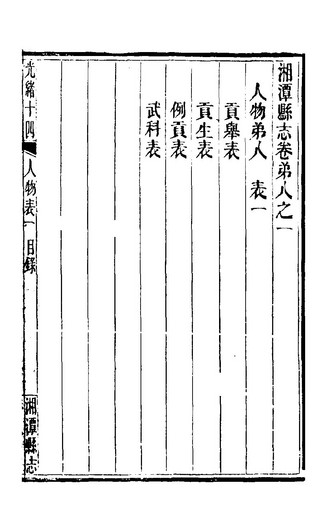 湘潭縣志卷弟八之一
人物弟八　表一
貢舉表
貢生表
例貢表
武科表
光緒十四
人物表一
目錄
湘潭縣志